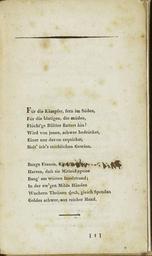 Für die Kämpfer, fern im Süden,
Für die blutigen, die müden,
Flücht'ge Blätter flattert hin!
Wird von jenen, schwer bedrücket,
Einer nur davon erquicket,
Heiß' ich's reichlichen Gewinn.
Bange Frauen,
Harren, daß sie
Bang' am wüsten Inselstrand;
In der ew'gen Milde Händen
Wuchern Theuren doch, gleich Spenden
Goldes schwer, aus reicher Hand.